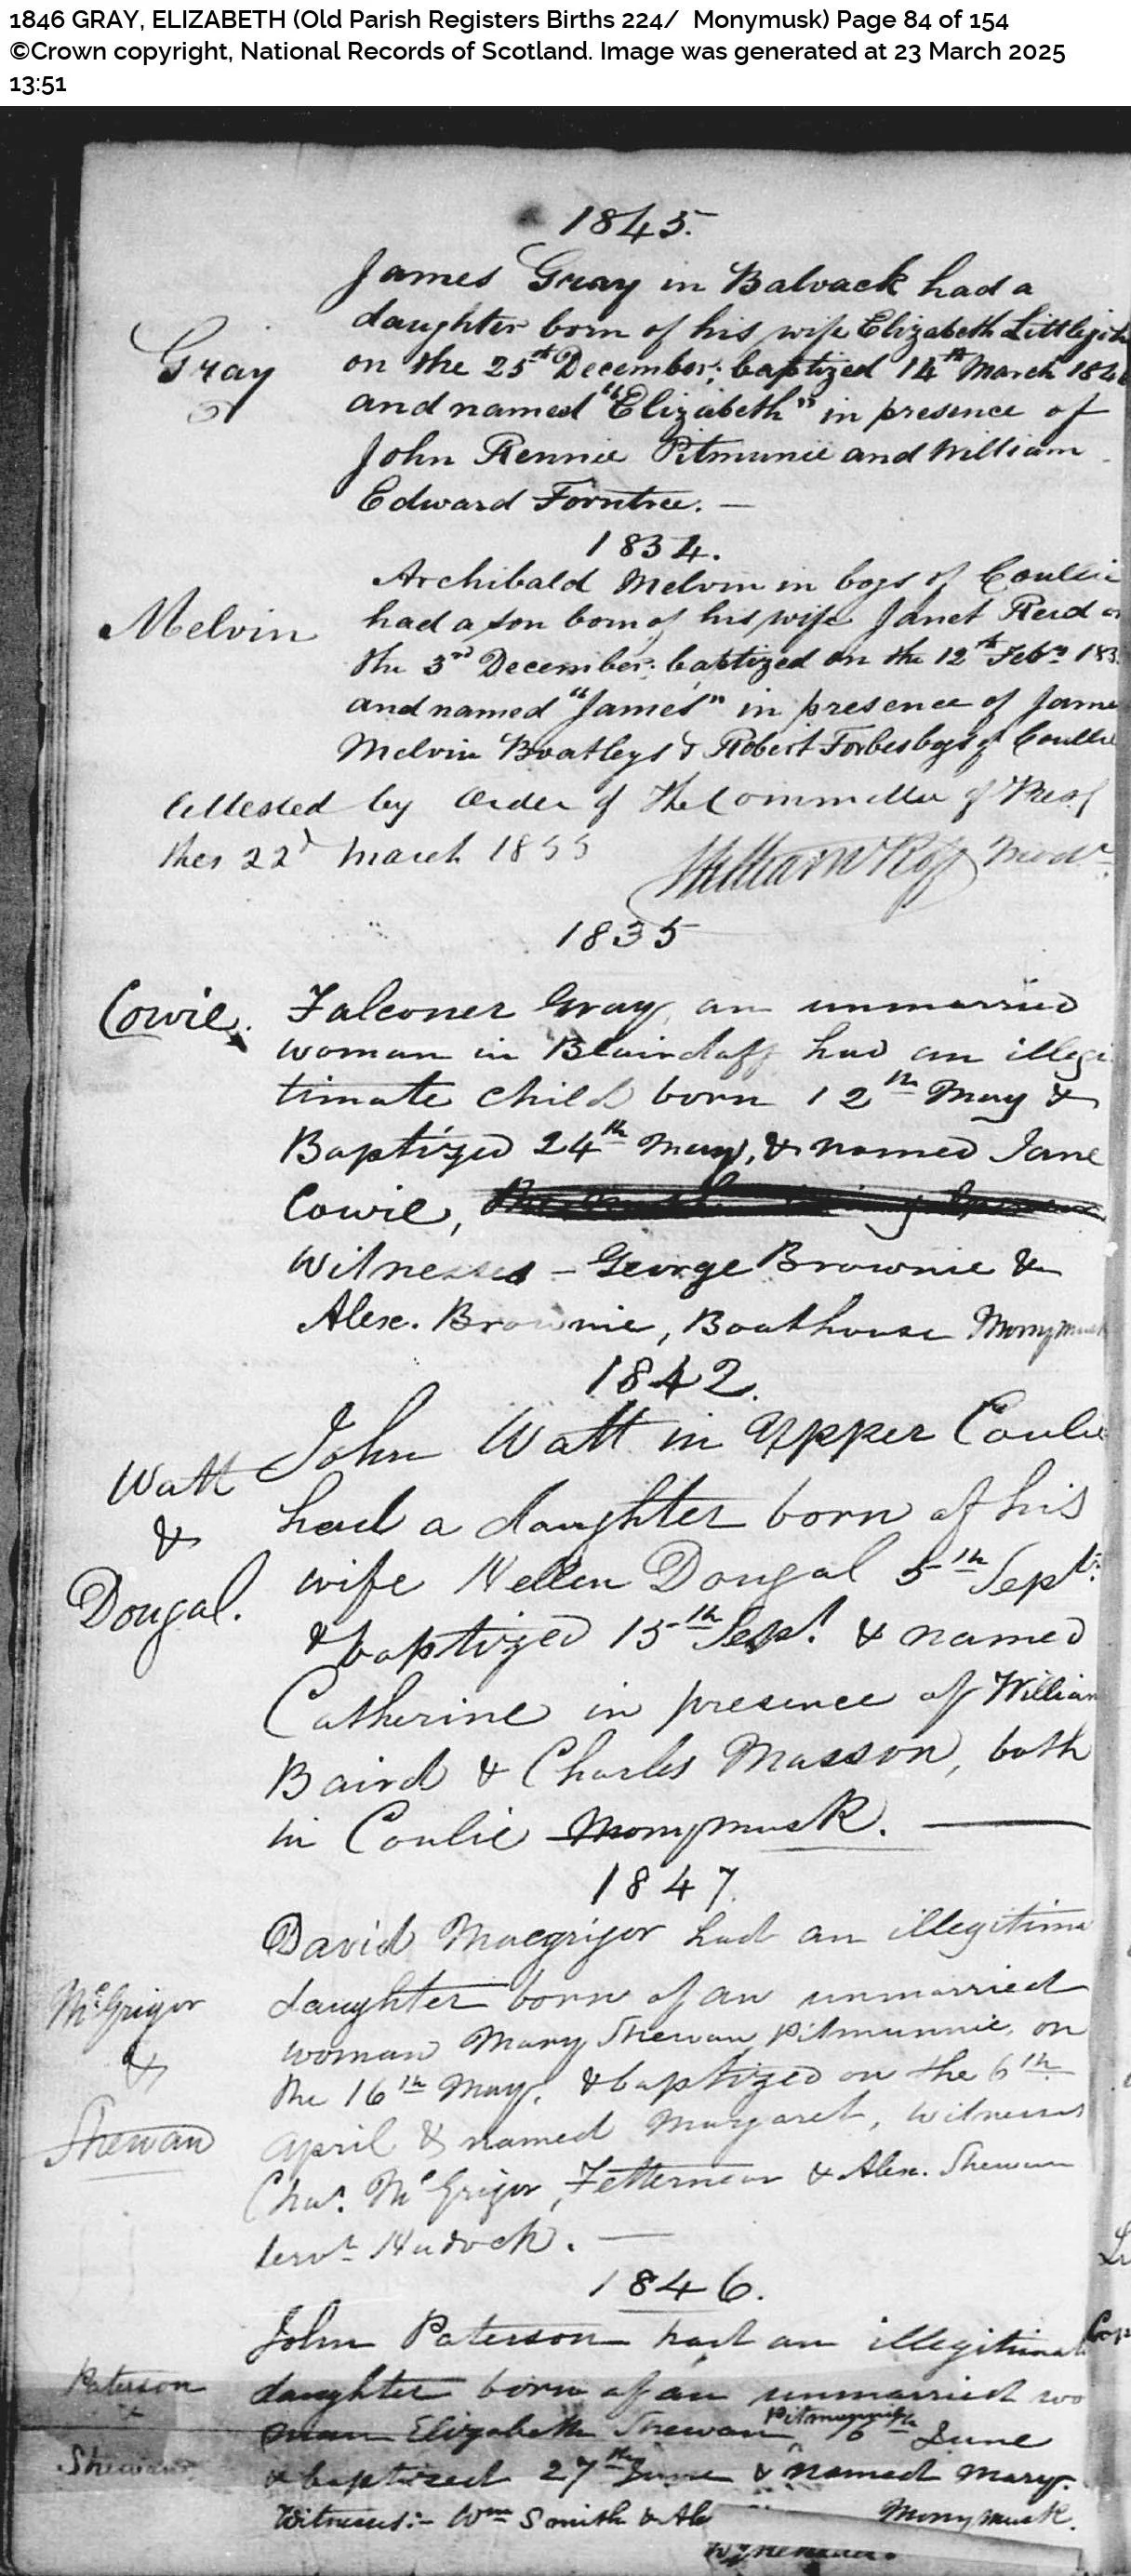 1846 GRAY, ELIZABETH (Old Parish Registers Births 224/ Monymusk) Page 84 of 154
©Crown copyright, National Records of Scotland. Image was generated at 23 March 2025
13:51
1845.
James Gray in Balvack had a
daughter born of his wife Elizabeth Littlejoh
Gray
on the 25th December; baptized 14th March 184
and named "Elizabeth" in presence of
John Rennie Pitmunie and William
Edward Forntree. —
1834.
Archibald Melvin in bogs of Coullie
Melvin
had a son born of his wife Janet Reid on
the 3rd December: baptized on the 12th Febry 183
and named "James" in presence of Jame
Melvin Boatleys & Robert Forbes bogs of Coullie
Attested by Order of the Committee of Presb
ther 22d March 1855
William Ross Modr.
1835
Cowie.
Falconer Gray, an unmarried
woman in Blairdaff had an illegi
timate child born 12th May &
Baptized 24th May, & named Jane
Cowie,
Witnesses – George Brownie &
Alex. Brownie, Boathouse Monymusk
1842.
John Watt in Upper Coulie
Watt
&
Dougal.
had a daughter born of his
wife Hellen Dougal 5th Sept.
& baptized 15th Sept. & named
Catherine in presence of William
Baird & Charles Masson, both
in Coulie Monymusk. —
1847.
David Macgrigor had an illegitima
McGrigor
&
Shewan
daughter born of an unmarried
woman Mary Shewan Pitmunnie, on
the 16th May, & baptized on the 6th
April & named Margaret, Witnesses
Chas. McGrigor, Fetternear & Alex. Shewan
servt
1846.
John Paterson had an illegitimat
Paterson
&
Shewan
daughter born of an unmarried wo
man Elizabeth Shewan Pitmunnie 16th June
& baptized 27th June & named Mary.
Witnesses:– Wm Smith & Al
Monymusk.